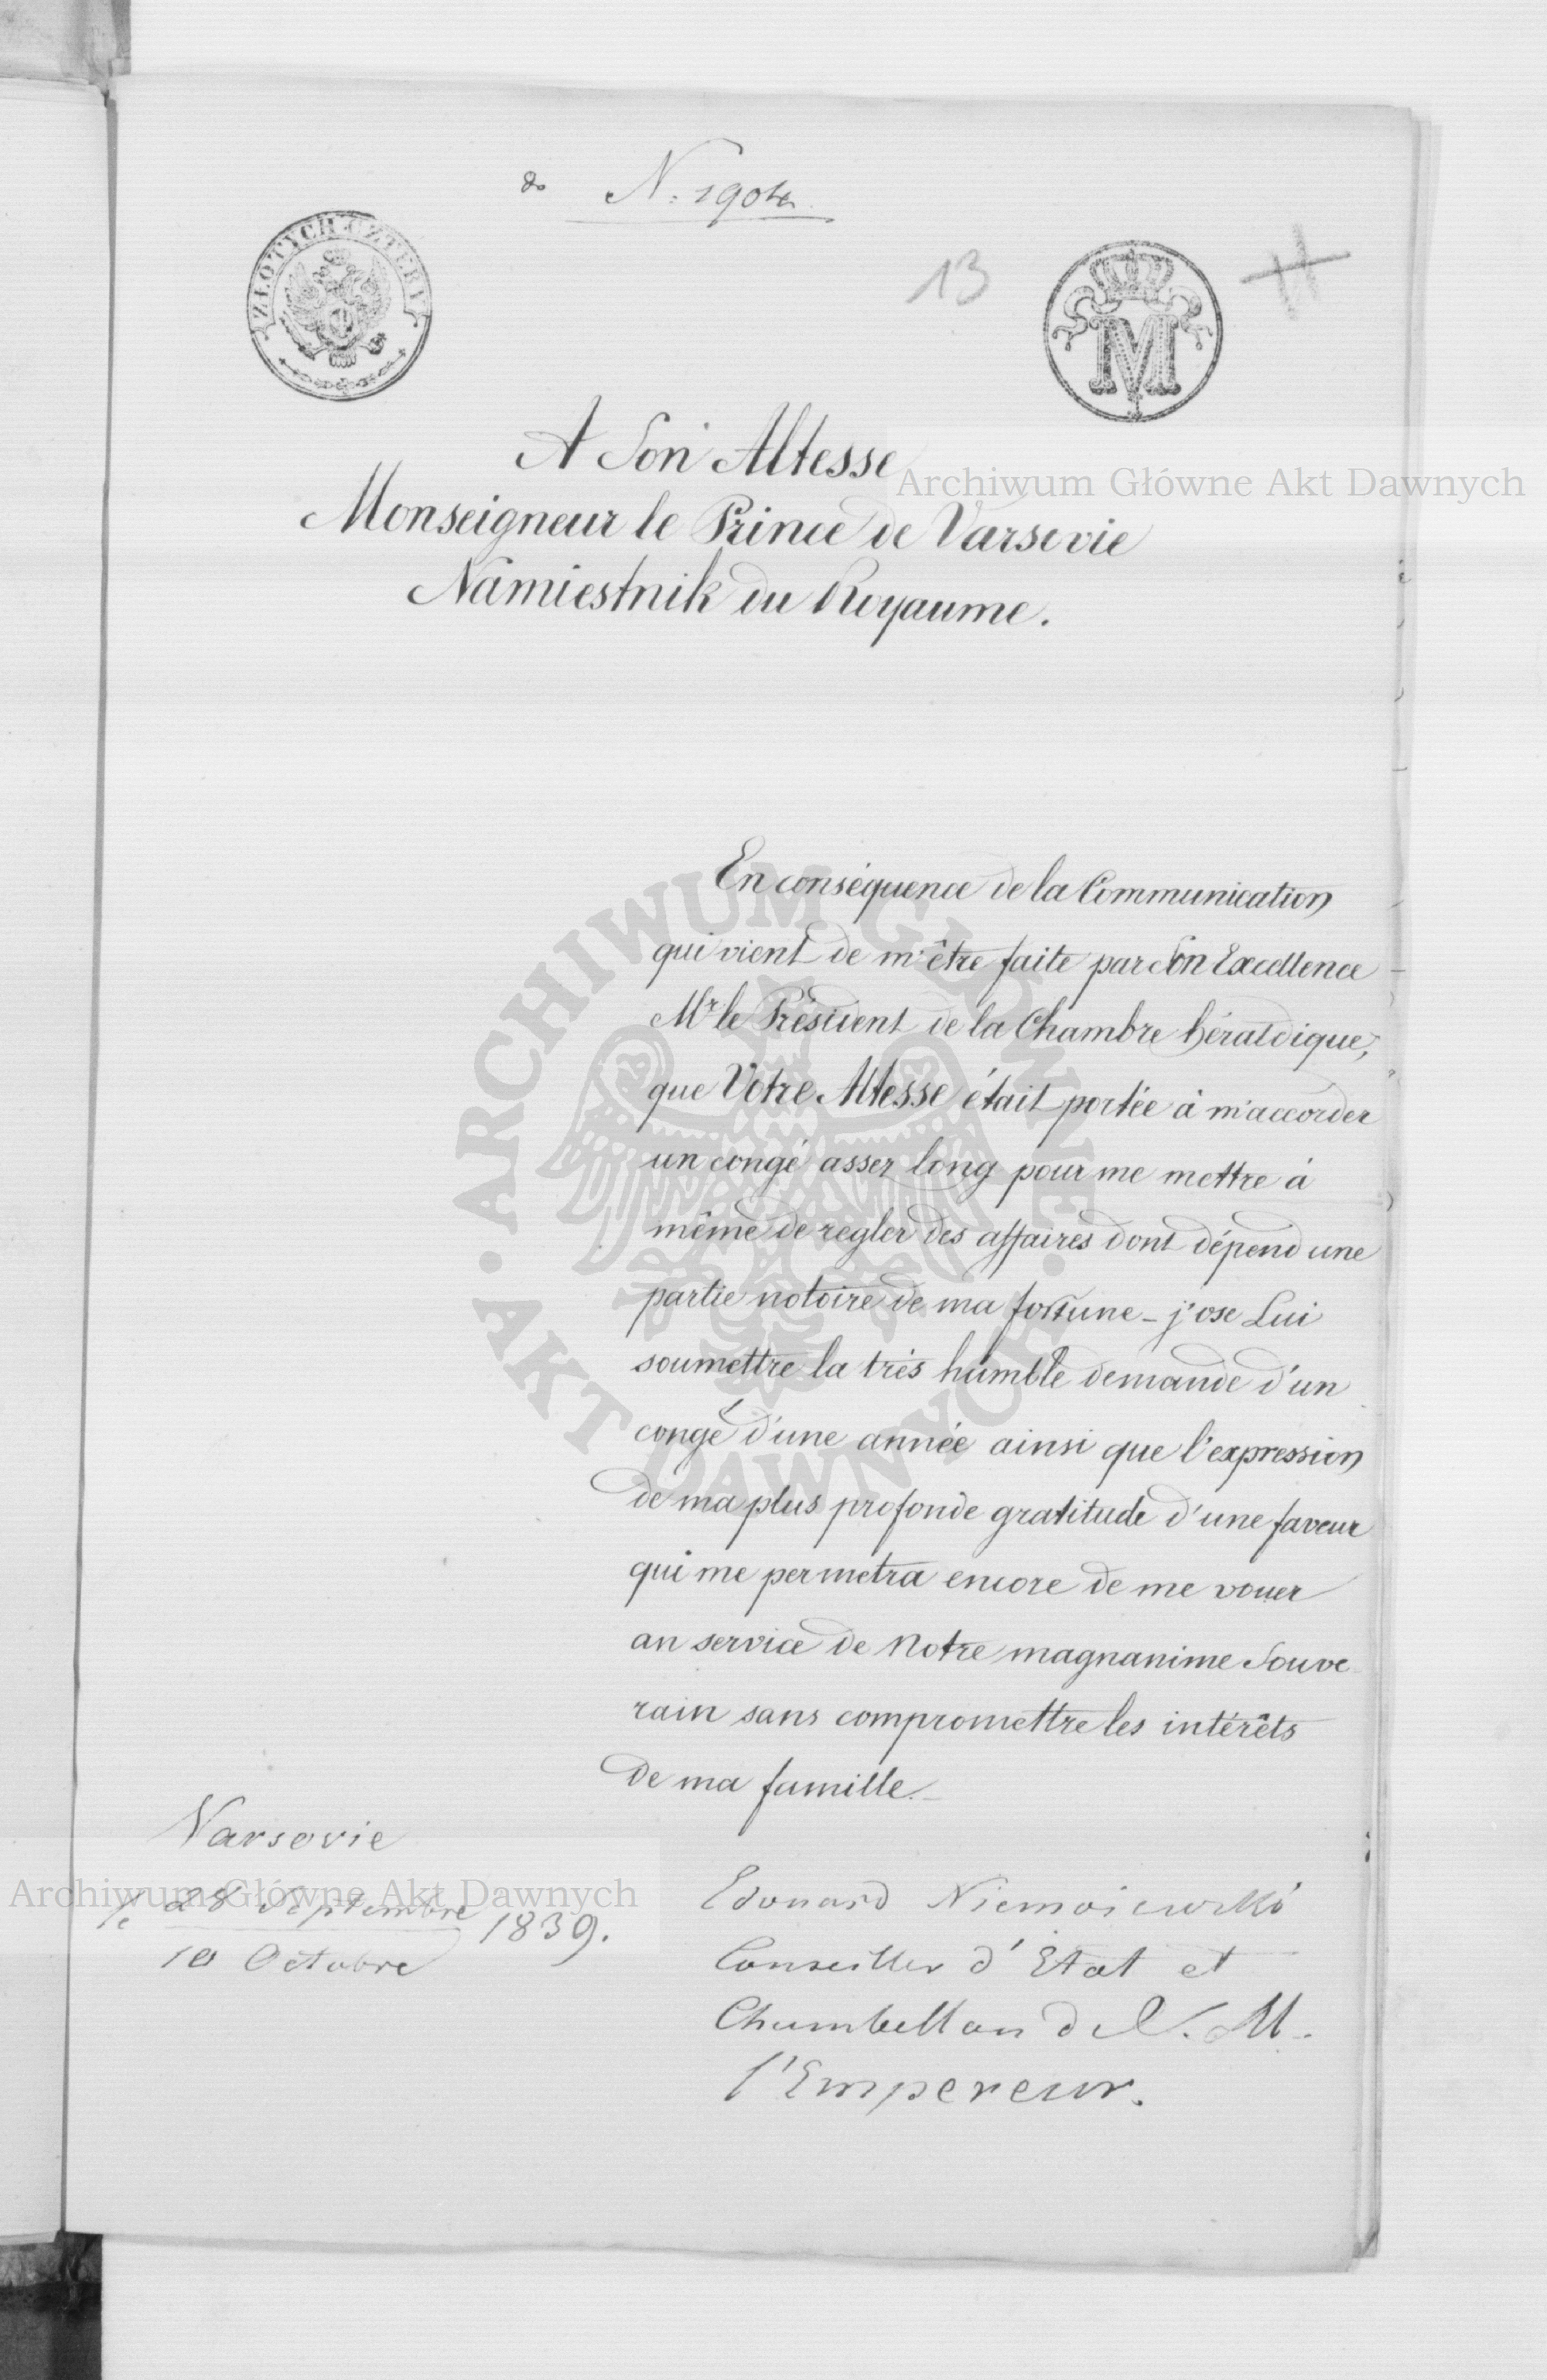 do N. 1904
ZŁOTYCH CZTERY
13
M
A Son Altesse
Archiwum Główne Akt Dawnych
Monseigneur le Prince de Varsovie
Namiestnik du Royaume.
En conséquence de la Communication
qui vient de m'être faite par Son Excellence
Mr le Président de la Chambre héraldique,
que Votre Altesse était portée à m'accorder
un congé assez long pour me mettre à
même de regler des affaires dont dépend une
partie notoire de ma fortune - j'ose Lui
soumettre la très humble demande d'un
congé d'une année ainsi que l'expression
de ma plus profonde gratitude d'une faveur
qui me permetra encore de me vouer
au service de Notre magnanime Souve-
rain sans compromettre les intérêts
de ma famille.-
ARCHIWUM GŁÓWNE · AKT DAWNYCH ·
Varsovie
le 28 Septembre 1839.
10 Octobre
Archiwum Główne Akt Dawnych
Edouard Niemoiewski
Conseiller d'Etat et
Chambellan de S. M.
l'Empereur.